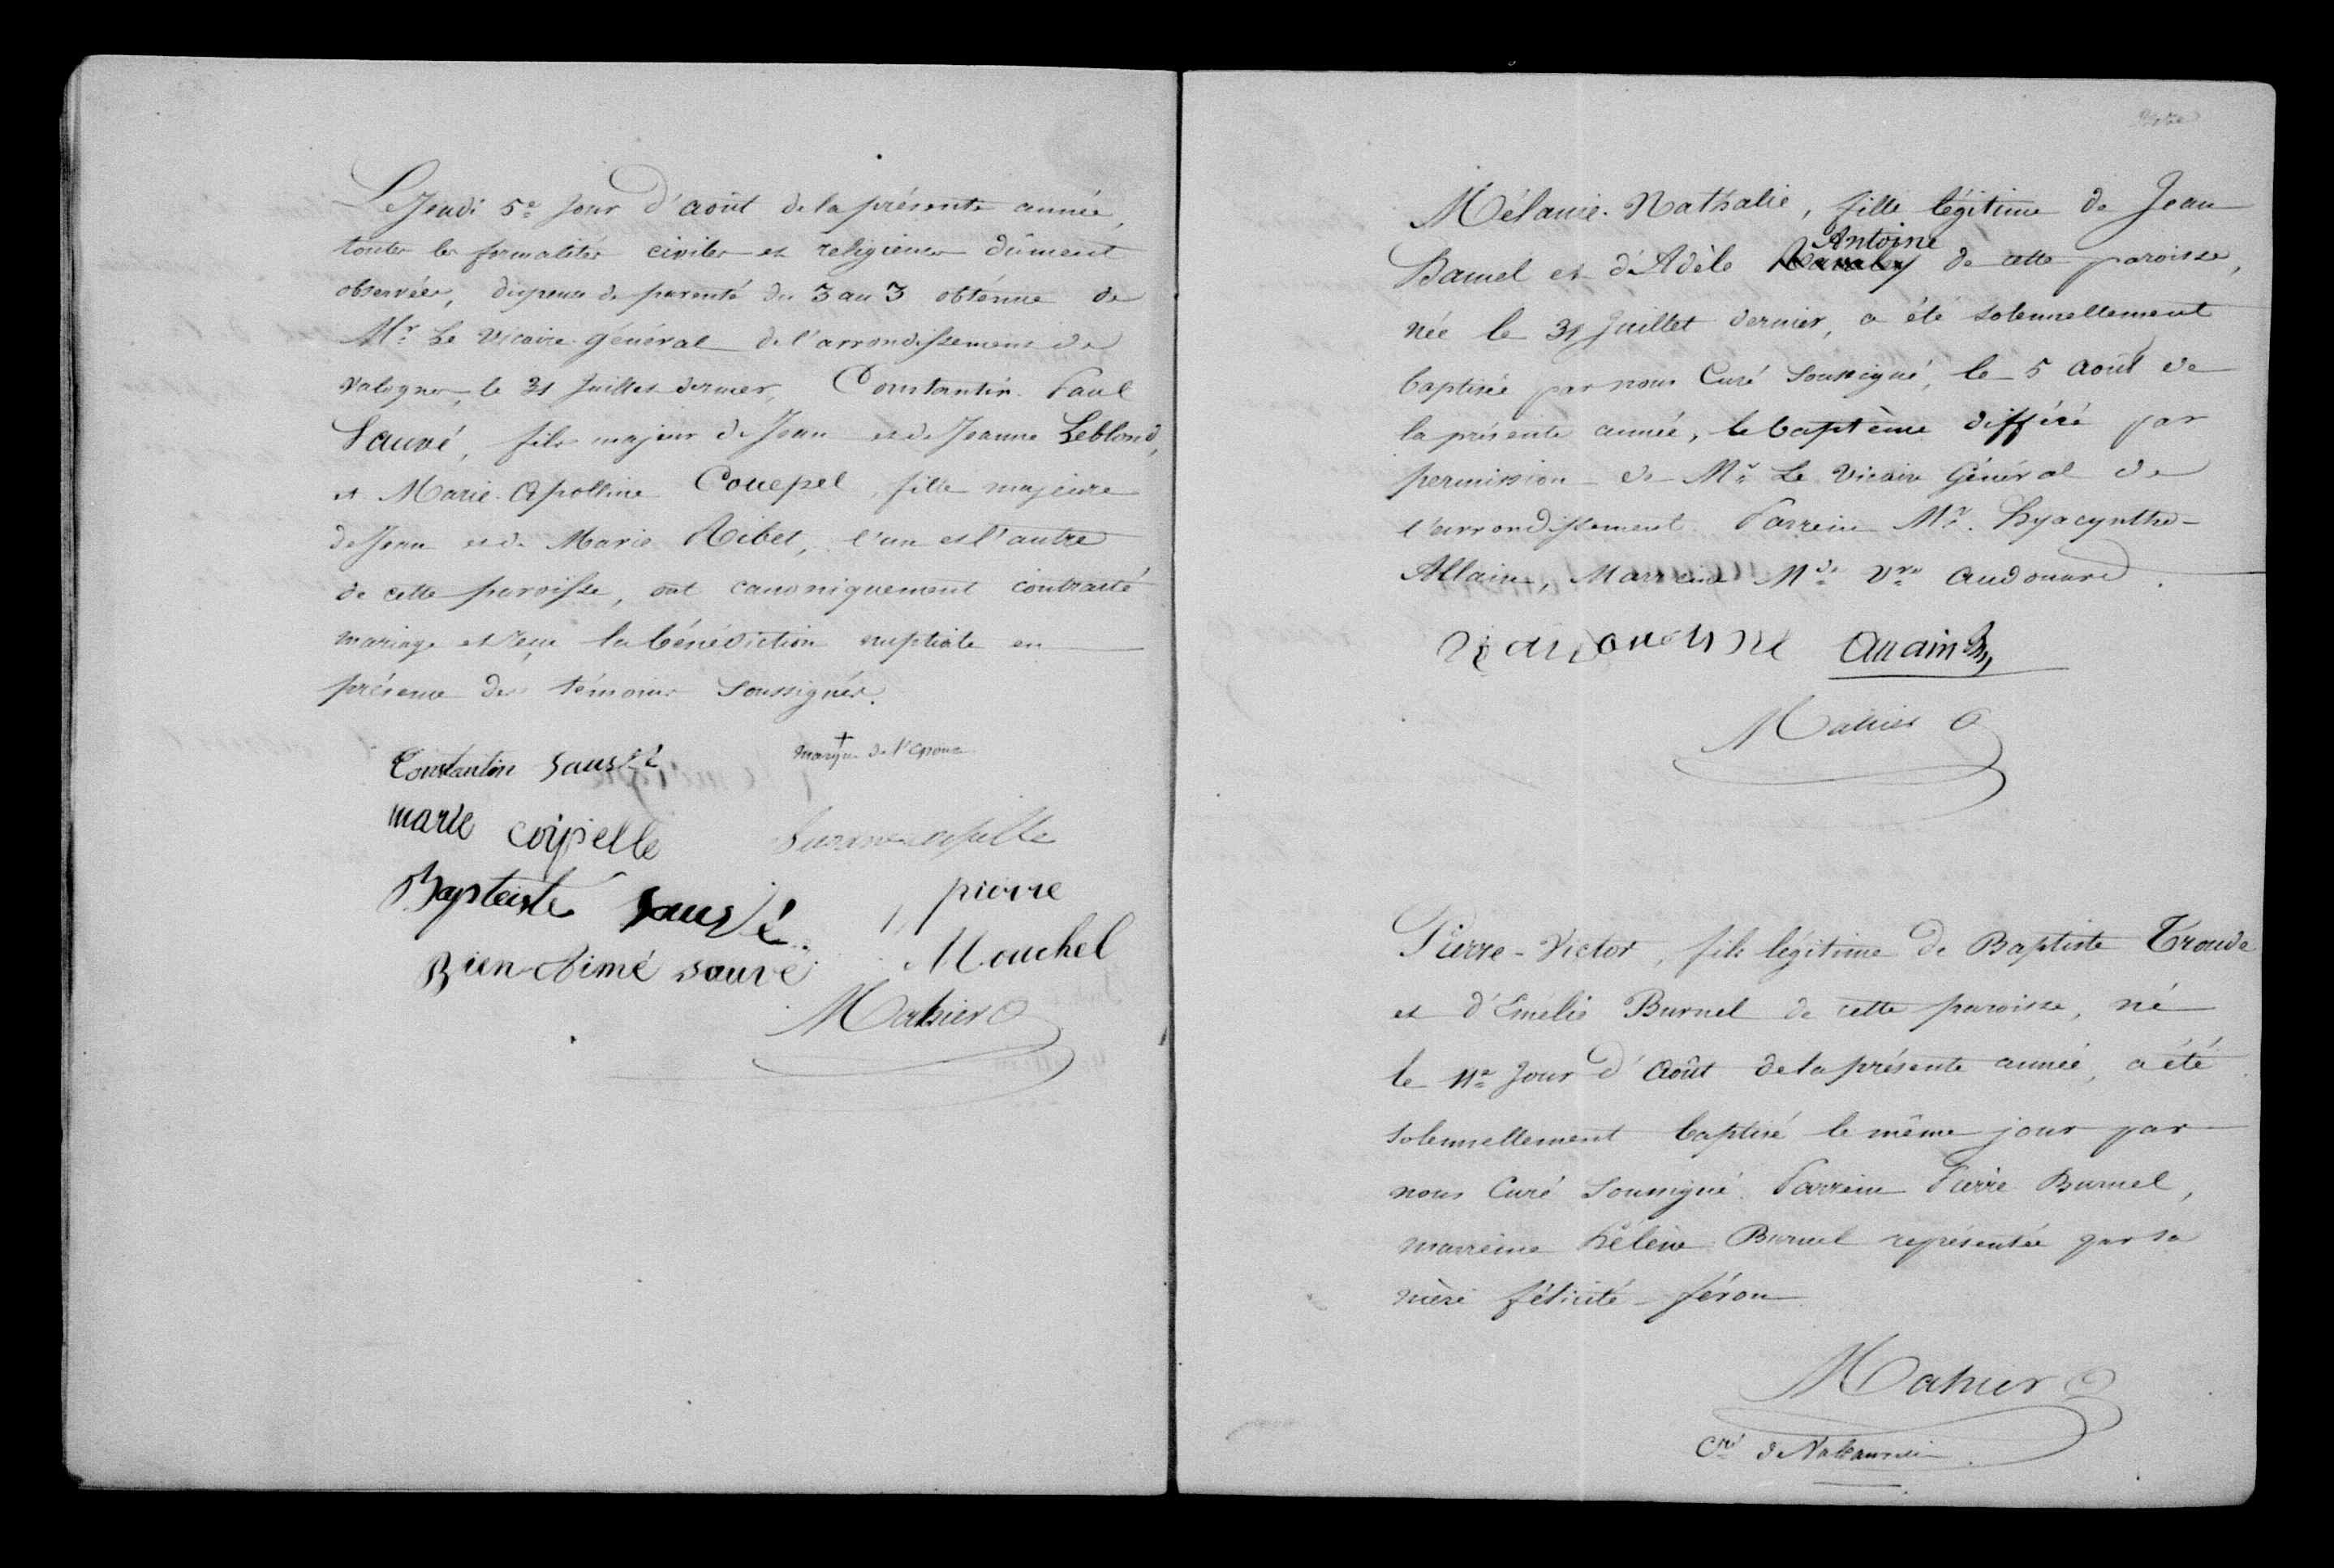 Le Jeudi 5e Jour d'août de la présente année,
toutes les formalités civiles et religieuses dûment
observées, dispense de parenté du 3 au 3 obtenue de
Mr. Le Vicaire général de l'arrondissement de
Valognes, le 31 Juillet dernier, Constantin Paul
Sauvé, fils majeur de Jean et de Jeanne Leblond,
et Marie-Apolline Couepel, fille majeure
de Jean et de Marie Ribet, l'un et l'autre
de cette paroisse, ont canoniquement contracté
mariage et reçu la bénédiction nuptiale en
présence des témoins soussignés.
Constantin Sauvé
+
marque de l'épouse
marie coipelle
Baptiste Sauvé
pierre
Mouchel
Bien-Aimé sauvé
Mahier
Mélanie-Nathalie, fille légitime de Jean
Antoine
Burnel et d'Adèle de cette paroisse,
née le 31 Juillet dernier, a été solennellement
baptisée par nous Curé Soussigné, le 5 août de
la présente année, le baptême différé par
permission de Mr. Le Vicaire Général de
l'arrondissement. Parrein Mr. Hyacynthe
Allain, Marreine Mde Vve Audouard.
Allain
Mahier
Pierre-Victor, fils légitime de Baptiste Troude
et d'Emélie Burnel de cette paroisse, né
le 11e Jour d'Août de la présente année, a été
solennellement baptisé le même jour par
nous Curé Soussigné. Parrein Pierre Burnel,
marreine hélène Burnel représentée par sa
mère félicité féron
Mahier
Cré de